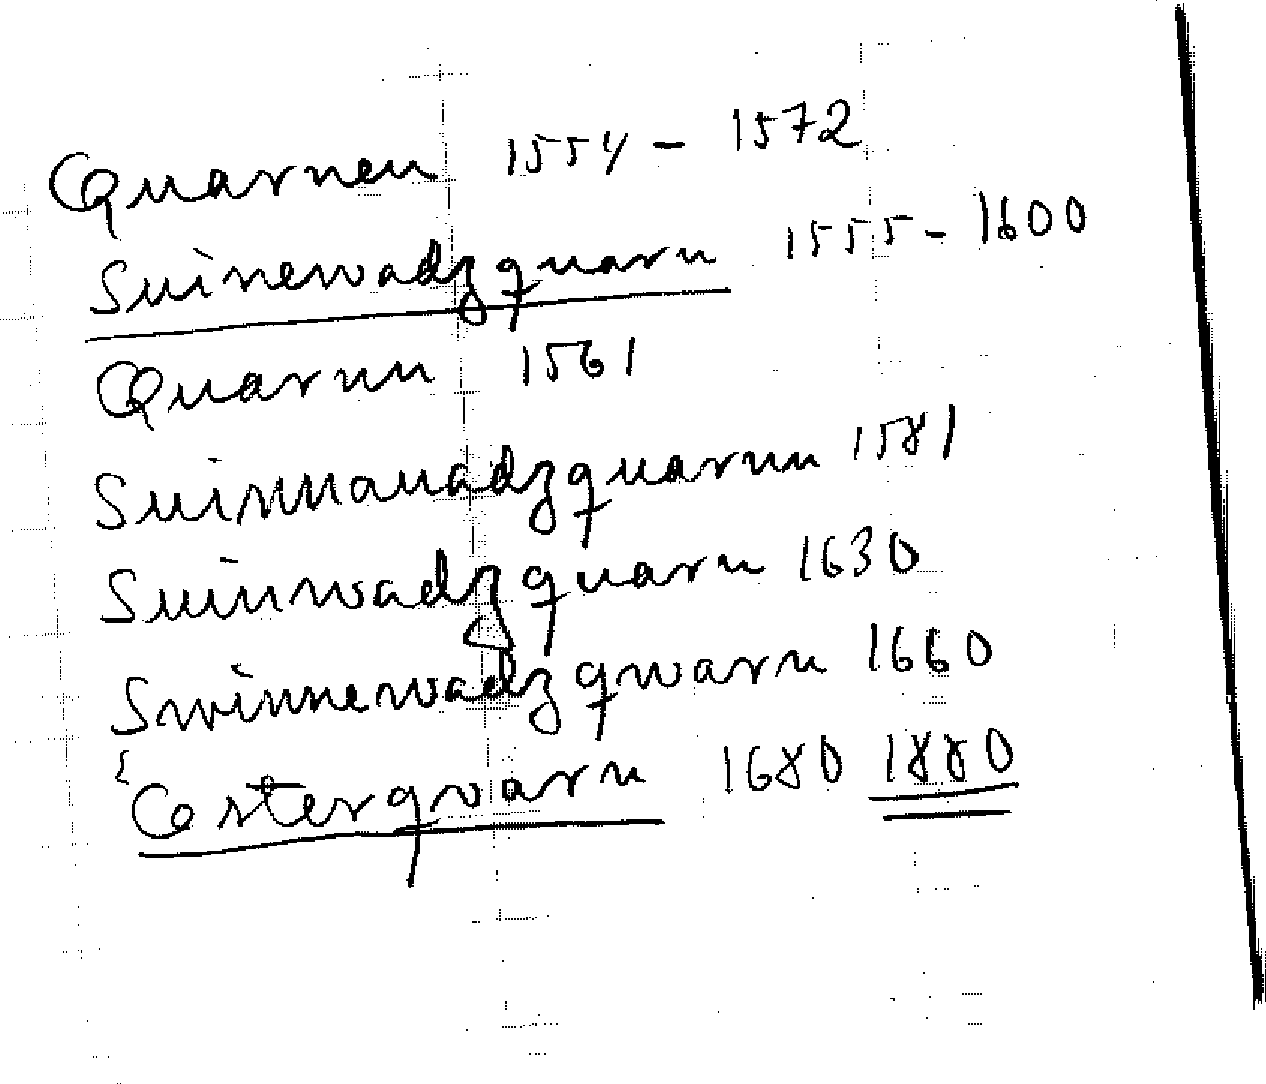 Quarnen 1554 - 1572
Suinewadzquarn 1555 - 1600
Quarnn 1561
Suinnauadzquarnn 1581
Suinwadzquarn 1630
Swinnewadzqwarn 1660
Oesterqvarn 1680 1880